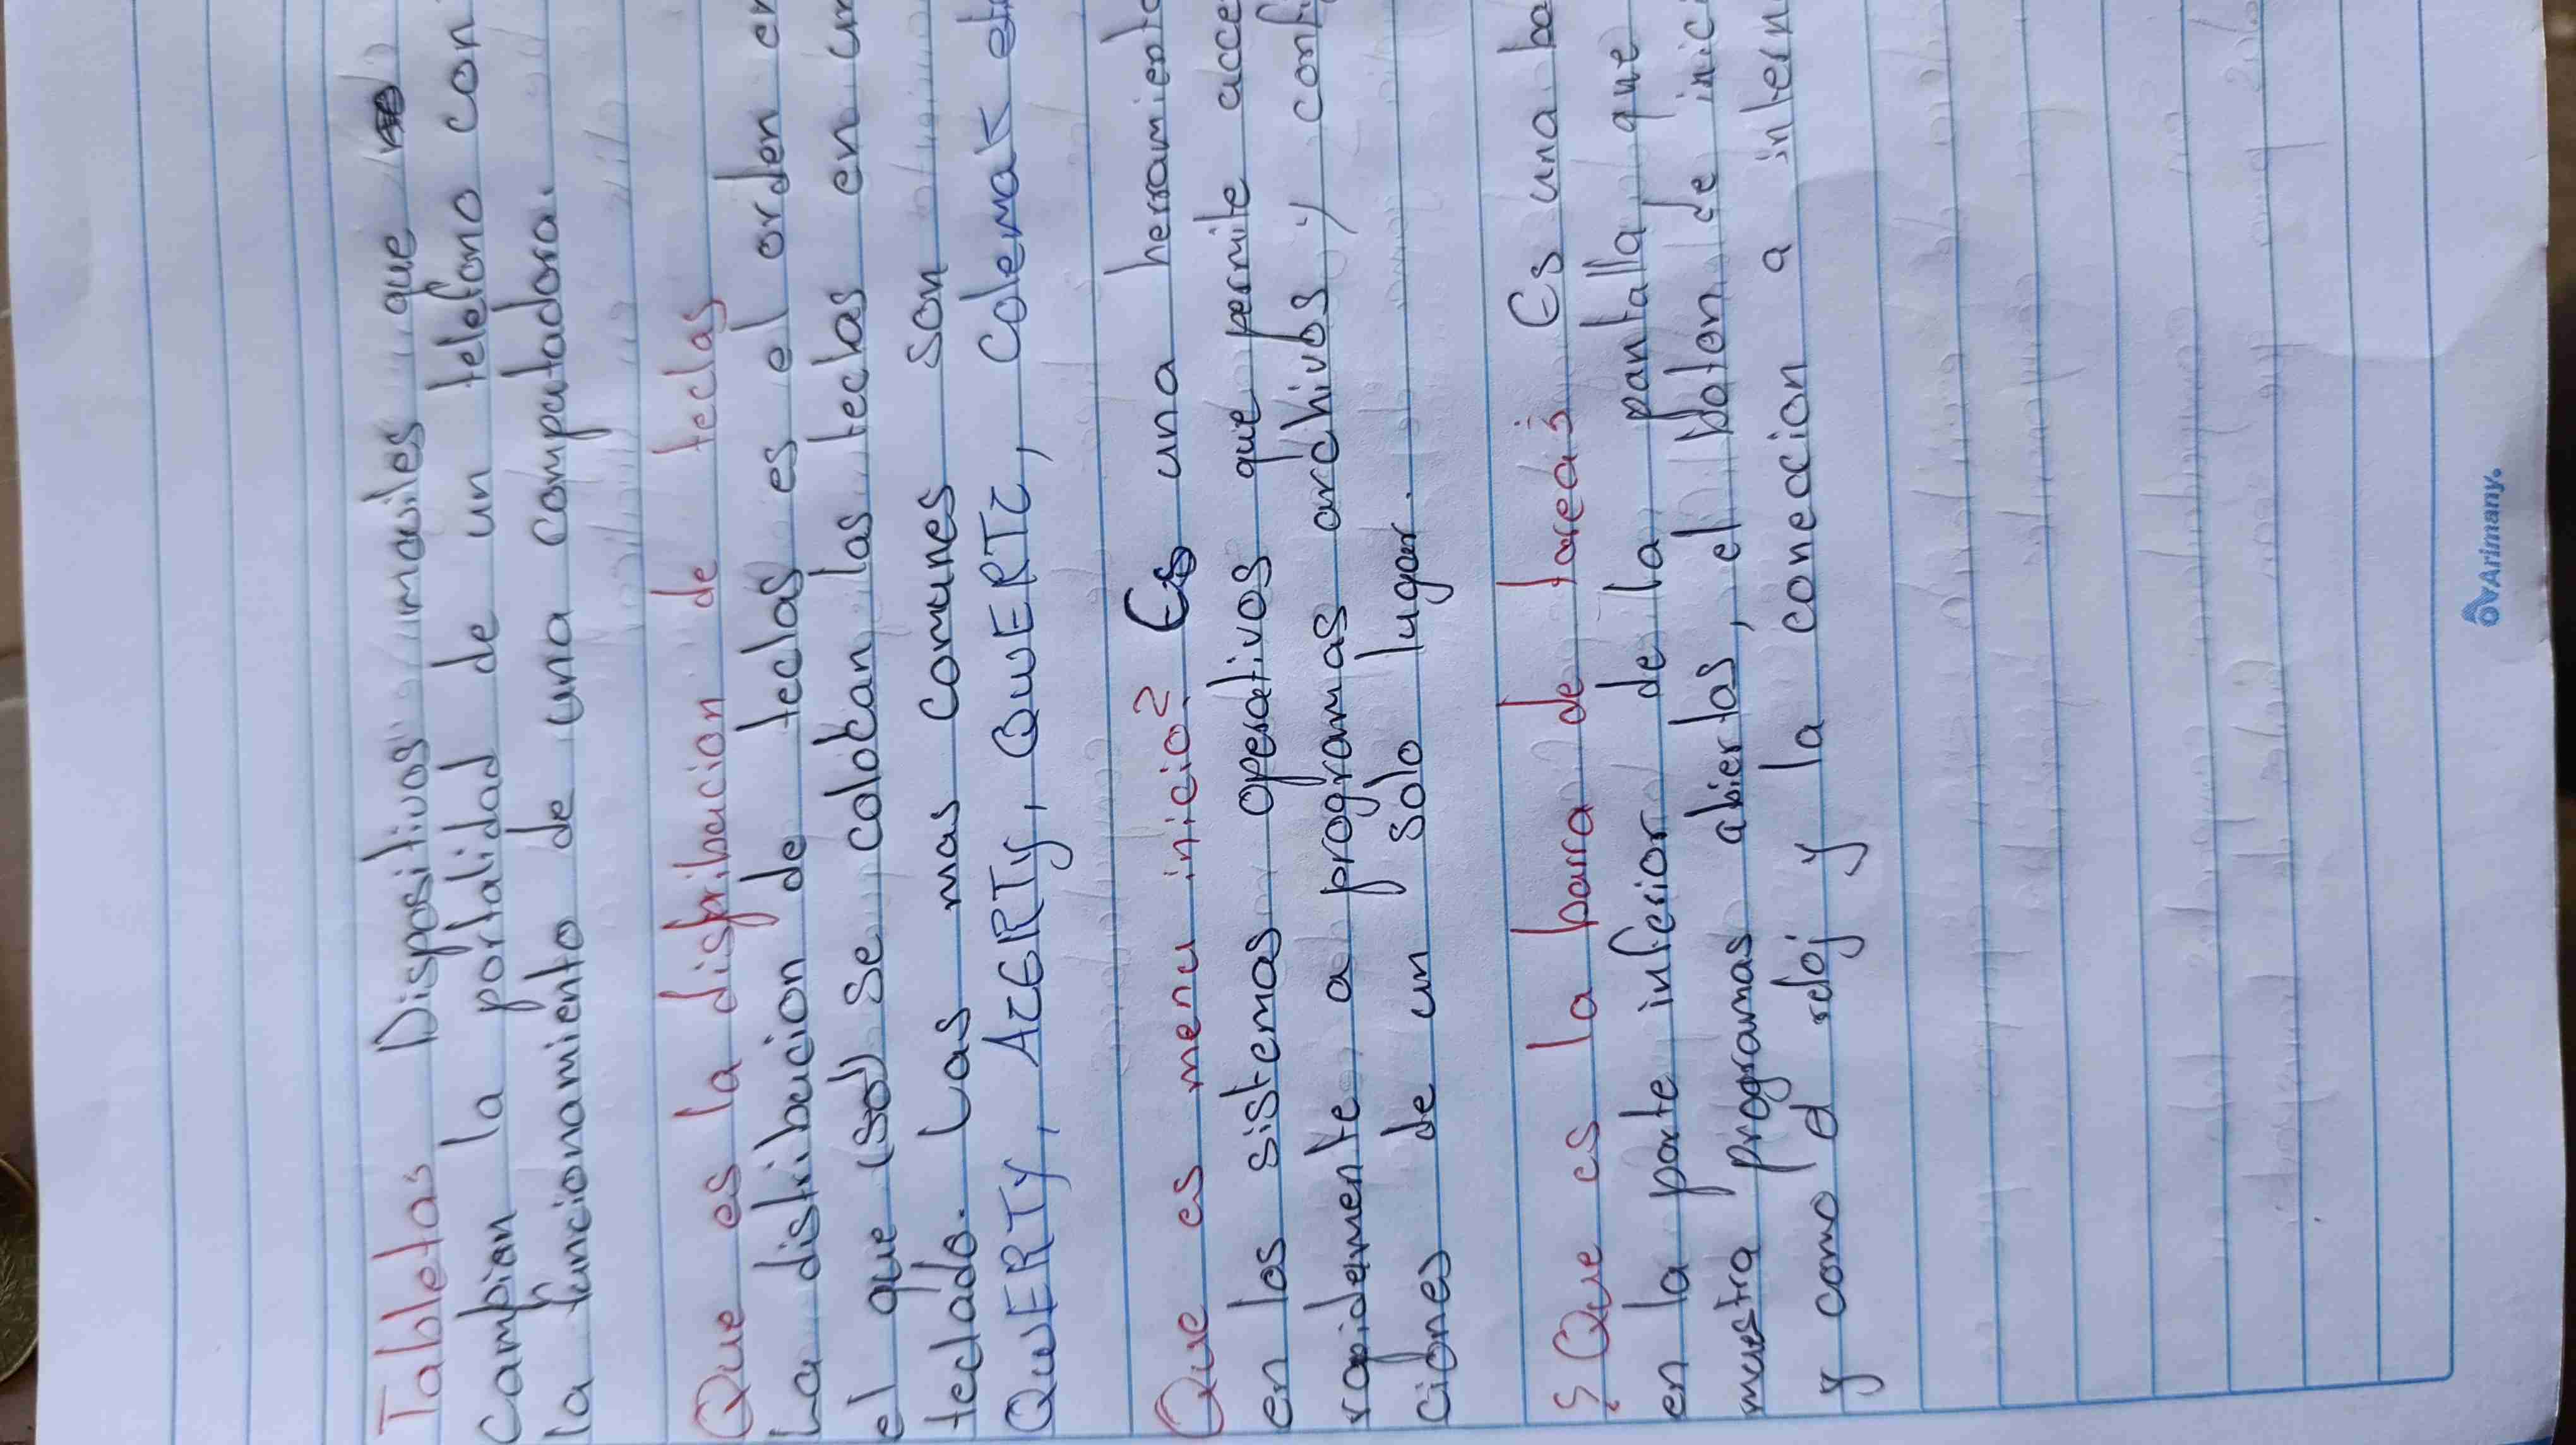 Tabletas Dispositivos moviles que
Cambian la portalidad de un telefono con
la funcionamiento de una computadora.
Que es la distribucion de teclas
La distribucion de teclas es el orden en
el que se colocan las teclas en un
teclado. Las mas comunes son
QWERTY, AZERTY, QWERTZ, Colemak
Que es menu inicio? Es una herramienta
en los sistemas operativos que permite acce
rapidamente a programas archivos y confi
ciones de un solo lugar.
¿ Que es la barra de tareas Es una ba
en la parte inferior de la pantalla que
muestra programas abiertos, el boton de inici
y como el reloj y la conexion a intern
Arimany.